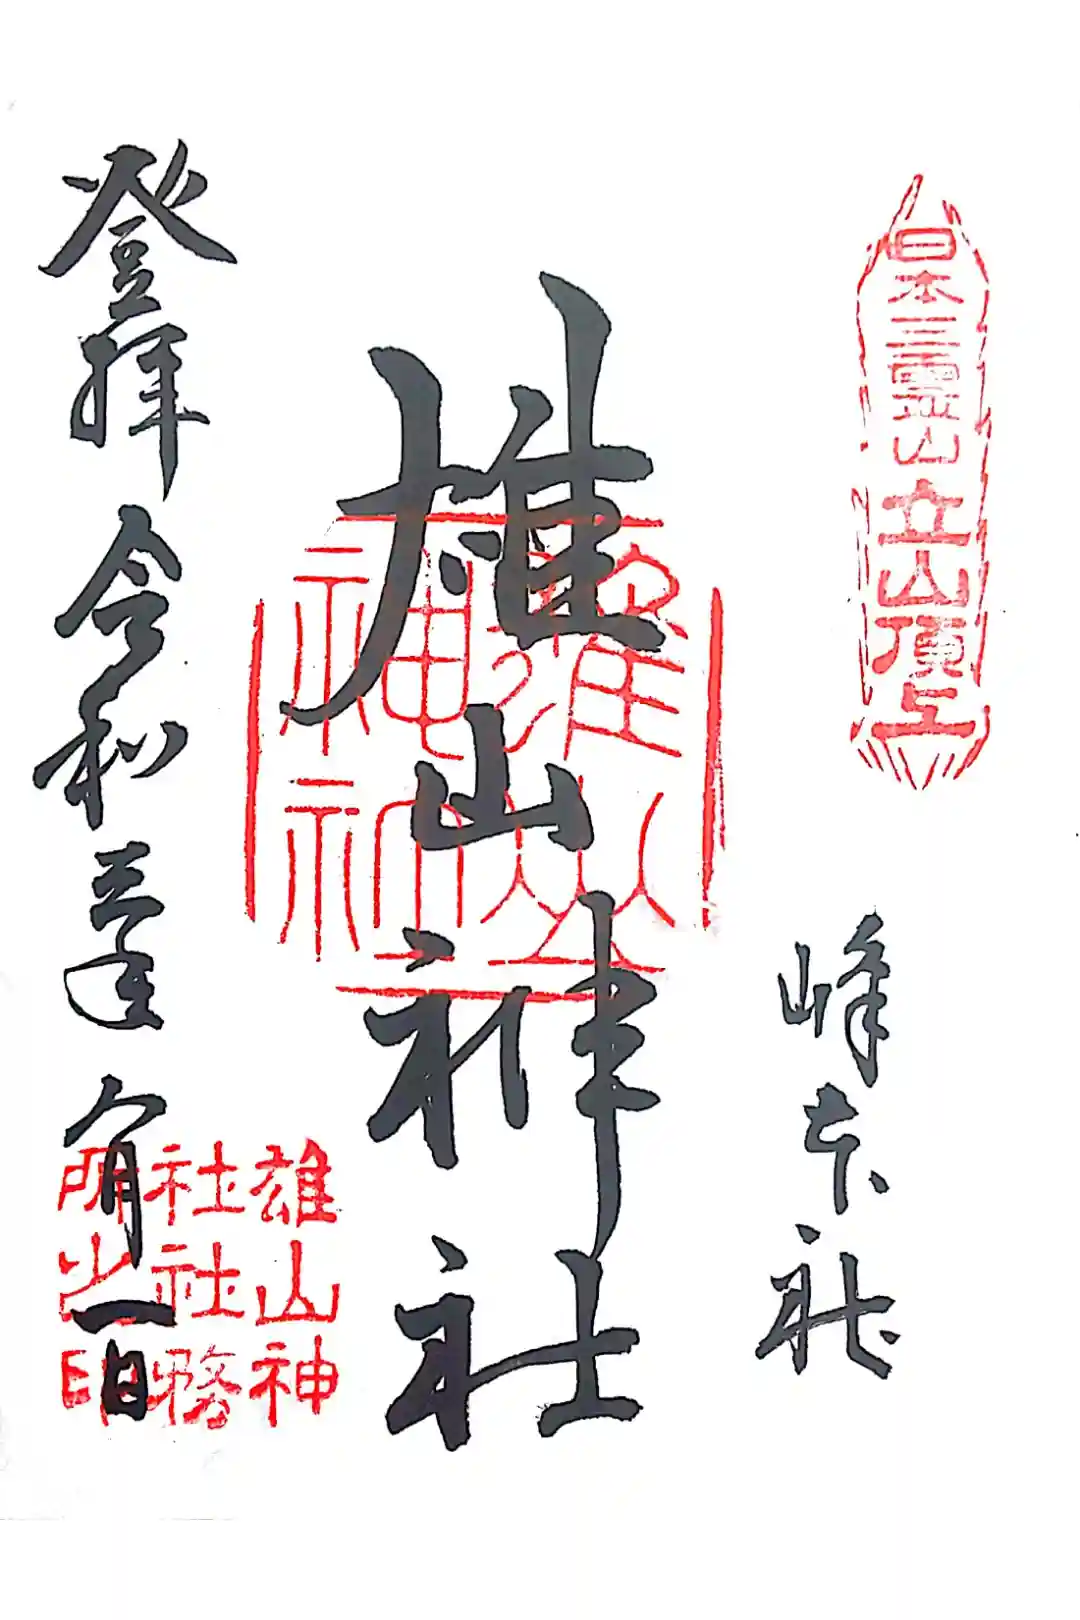 日本三霊山立山頂上
峰本社
雄山神社
登拝 令和三年八月一日
雄山神
社社務
所之印